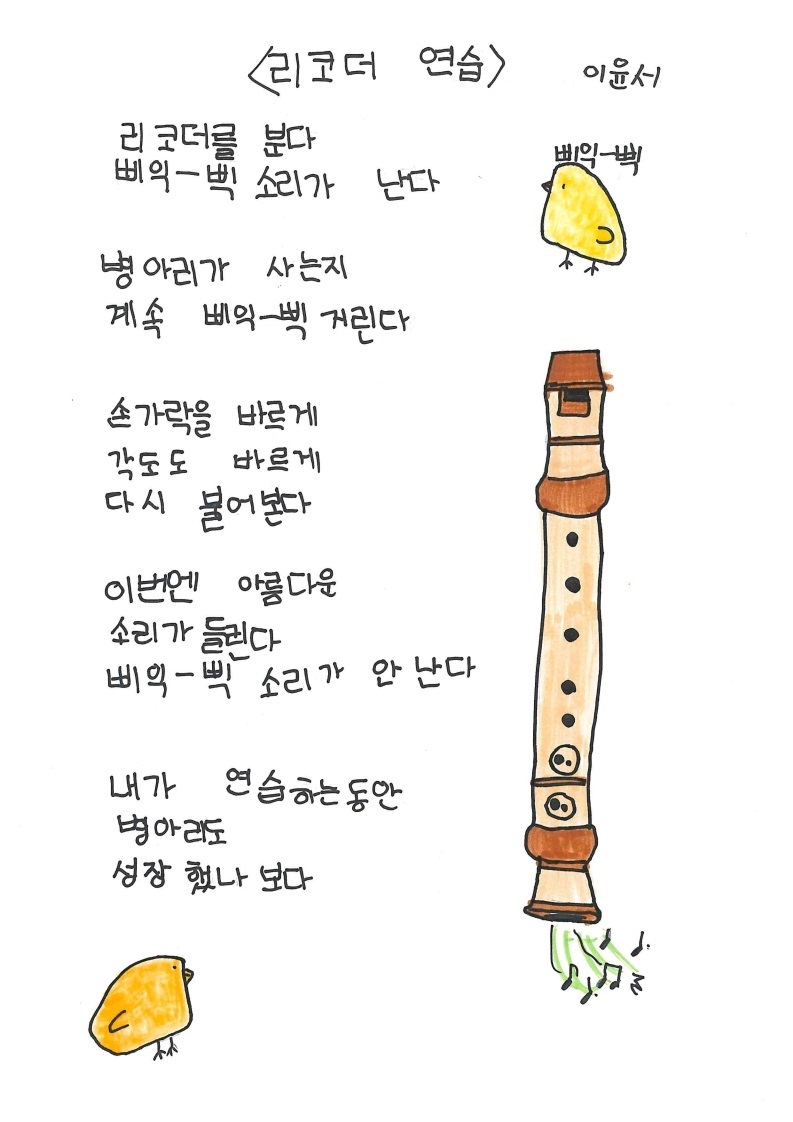 <리코더 연습>
이윤서
리코더를 분다
삐익-삑 소리가 난다
삐익-삑
병아리가 사는지
계속 삐익-삑 거린다
손가락을 바르게
각도도 바르게
다시 불어본다
이번엔 아름다운
소리가 들린다
삐익-삑 소리가 안 난다
내가 연습하는동안
병아리도
성장 했나 보다